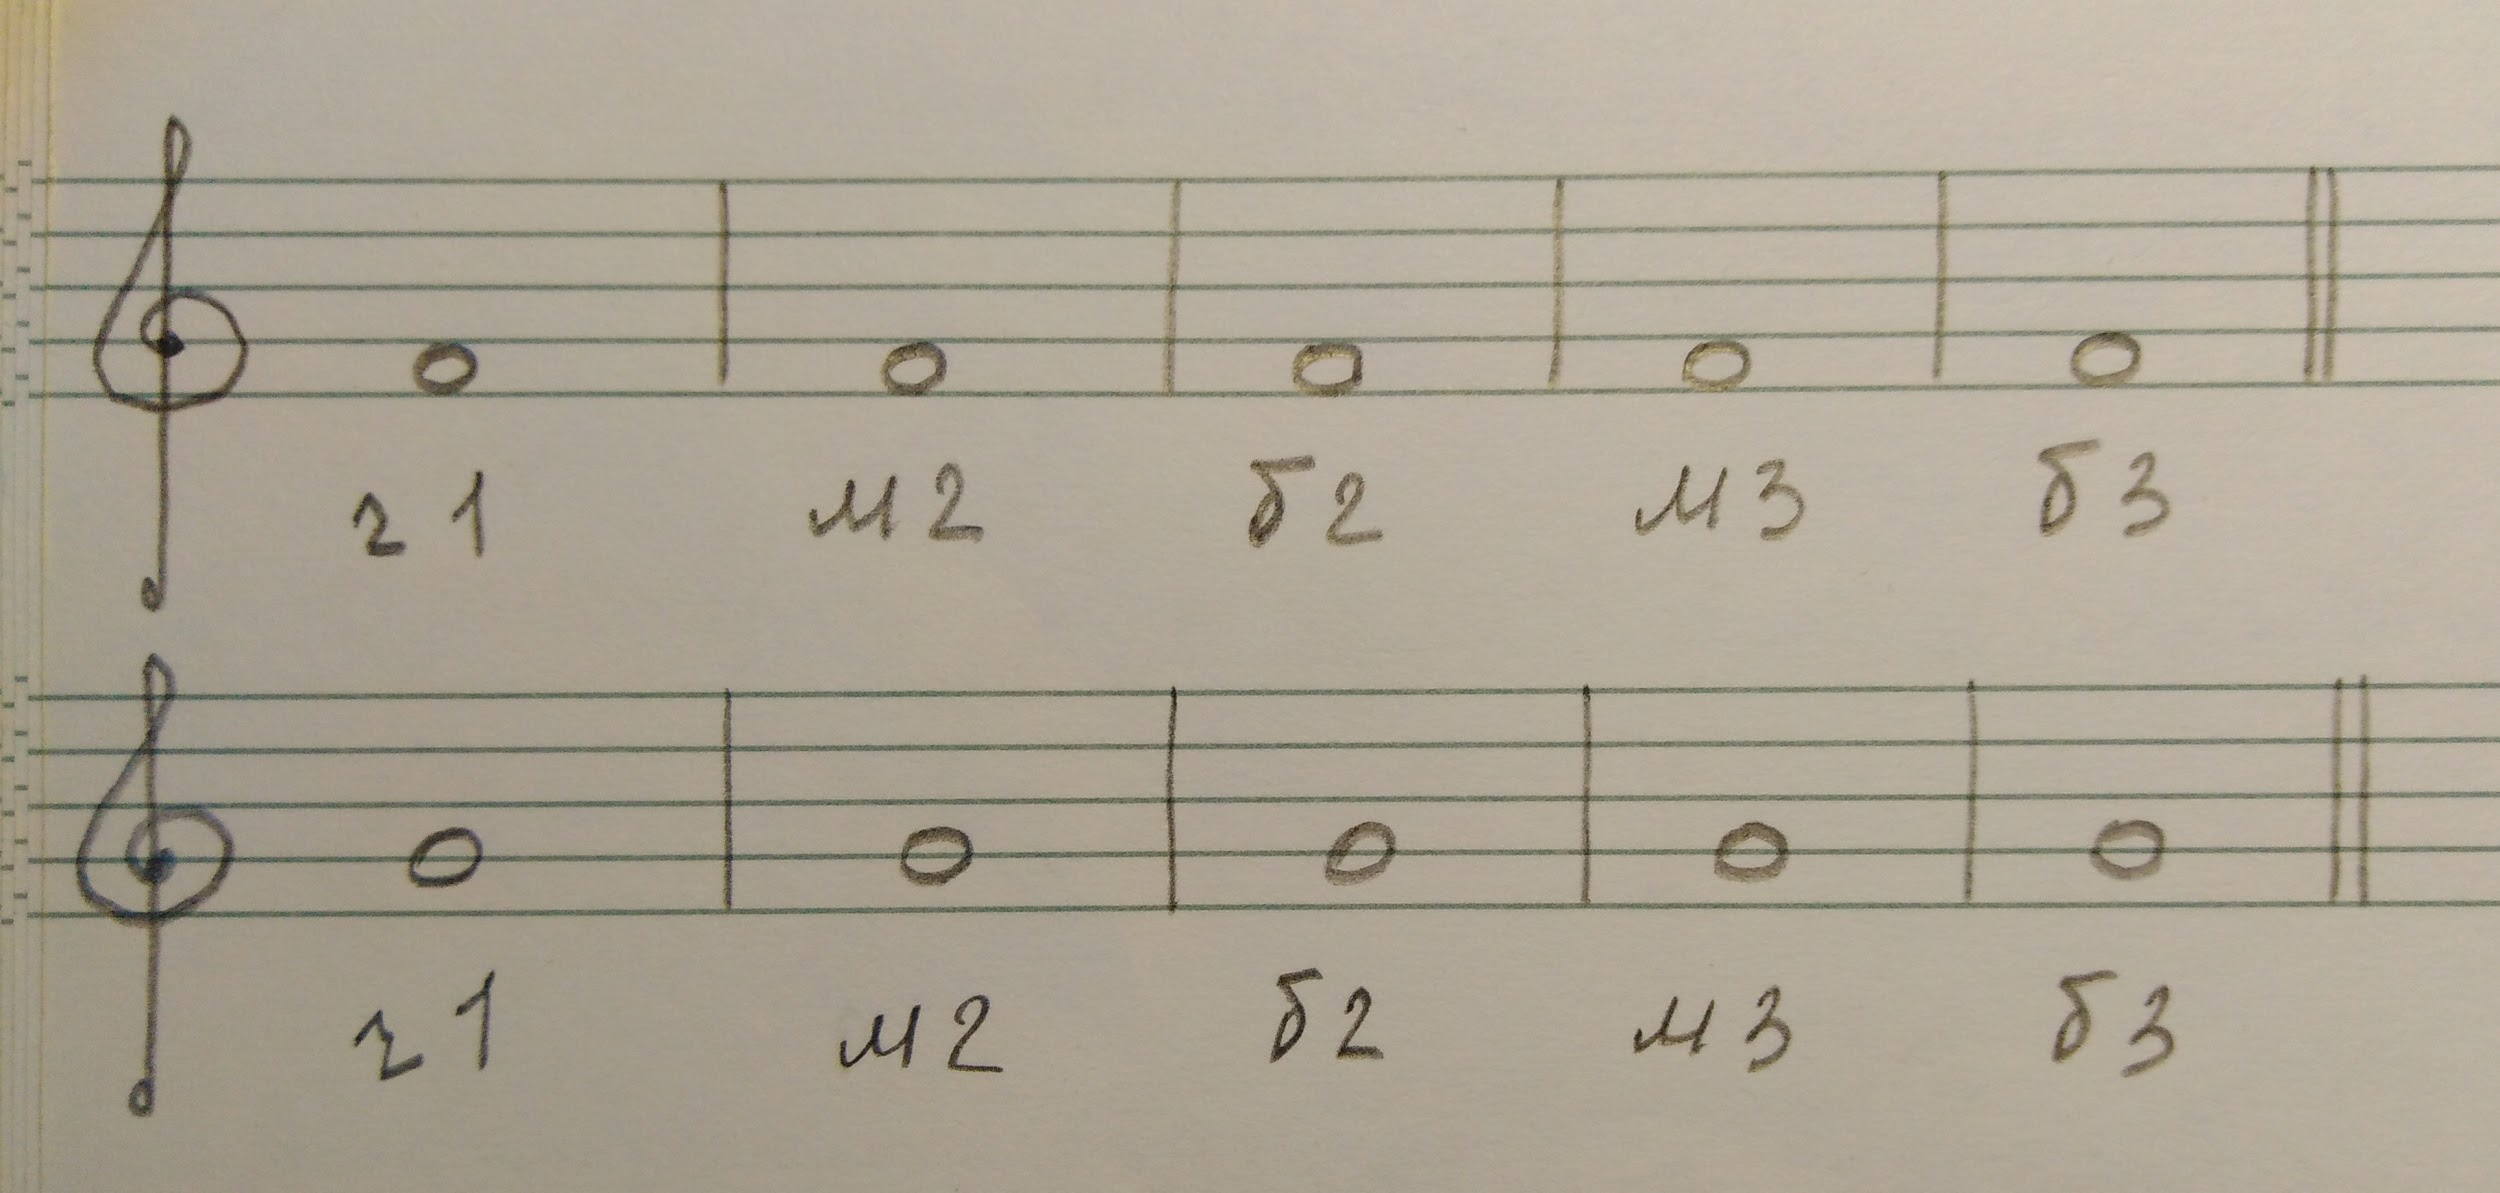 ч1 м2 б2 м3 б3
ч1 м2 б2 м3 б3